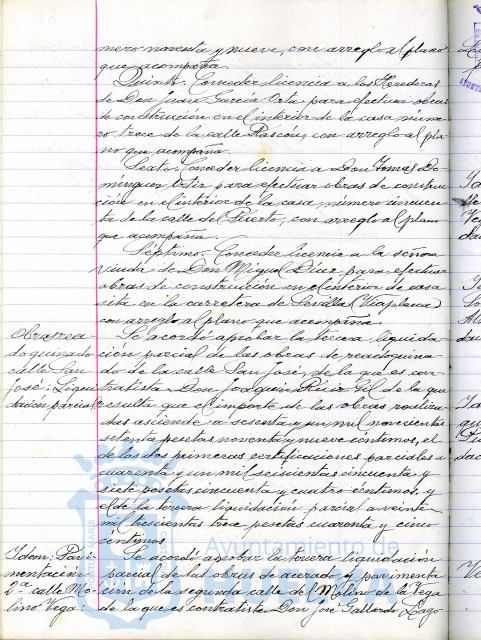 mero noventa y nueve, con arreglo al plano
que acompaña.
Quinto. Conceder licencia a los Herederos
de Don Juan García Orta para efectuar obras
de construcción en el interior de la casa núme-
ro trece de la calle Rascón, con arreglo al pla-
no que acompaña.
Sexto. Conceder licencia a Don Tomás Do-
mínguez Ortiz para efectuar obras de construc-
ción en el interior de la casa, número cincuen-
ta de la calle del Puerto, con arreglo al plano
que acompaña.
Séptimo. Conceder licencia a la señora
viuda de Don Miguel Díaz para efectuar
obras de construcción en el interior de casa
sita en la carretera de Sevilla
con arreglo al plano que acompaña.
Obras rea
doquinado
calle San
José: Liqui
dación parcial
Se acordó aprobar la tercera liquida-
ción parcial de las obras de readoquina-
do de la calle San José, de la que es con-
tratista Don Joaquín Ruiz Gil de la que
resulta que el importe de las obras realiza-
das asciende a sesenta y un mil novecientas
setenta pesetas noventa y nueve céntimos, el
de las dos primeras certificaciones parciales a
cuarenta y un mil seiscientas cincuenta y
siete pesetas cincuenta y cuatro céntimos, y
el de la tercera liquidación parcial a veinte
mil trescientas trece pesetas cuarenta y cinco
céntimos.
Idem: Pavi-
mentación
2ª calle Mo-
lino Vega:
Se acordó aprobar la tercera liquidación
parcial de las obras de acerado y pavimenta-
ción de la segunda calle del Molino de la Vega
de la que es contratista Don José Gallardo Lago
Ayuntamiento de